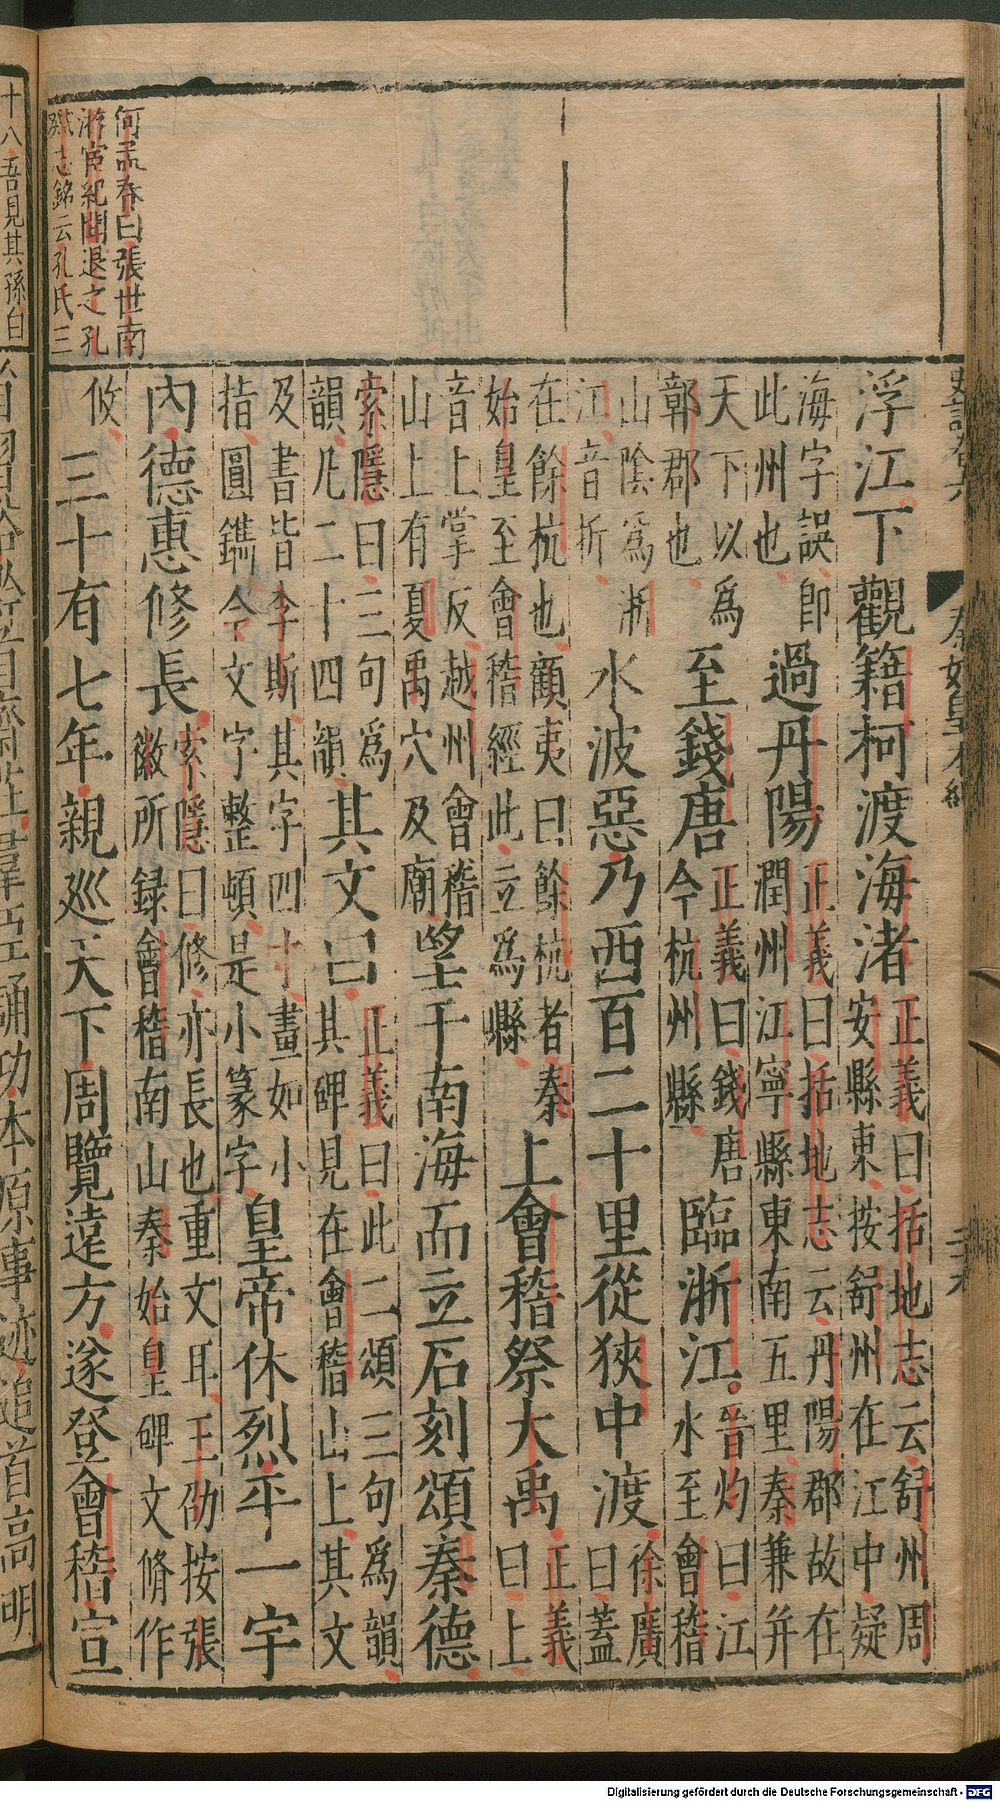 史記卷六 秦始皇本紀
浮江下觀籍柯渡海渚
正義曰括地志云舒州周
安縣東按舒州在江中疑
海字誤即
此州也
過丹陽
正義曰括地志云丹陽郡故在
潤州江寧縣東南五里秦兼并
天下以爲
鄣郡也
至錢唐
正義曰錢唐
今杭州縣
臨浙江
晉灼曰江
水至會稽
山陰爲浙
江音折
水波惡乃西百二十里從狹中渡
徐廣
曰蓋
在餘杭也顧夷曰餘杭者秦
始皇至會稽經此立爲縣
上會稽祭大禹
正義
曰上
音上掌反越州會稽
山上有夏禹穴及廟
望于南海而立石刻頌秦德
索隱曰三句爲
韻凡二十四韻
其文曰
正義曰此二頌三句爲韻
其碑見在會稽山上其文
及書皆李斯其字四寸畫如小
指圓鐫今文字整頓是小篆字
皇帝休烈平一宇
內德惠修長
索隱曰修亦長也重文耳王劭按張
徽所録會稽南山秦始皇碑文脩作
攸
三十有七年親巡天下周覽遠方遂登會稽宣
何孟春曰張世南
游宦紀聞退之孔
戣志銘云孔氏三
十八吾見其孫白
羣臣誦功本原事迹追首高明
Digitalisierung gefördert durch die Deutsche Forschungsgemeinschaft - DFG